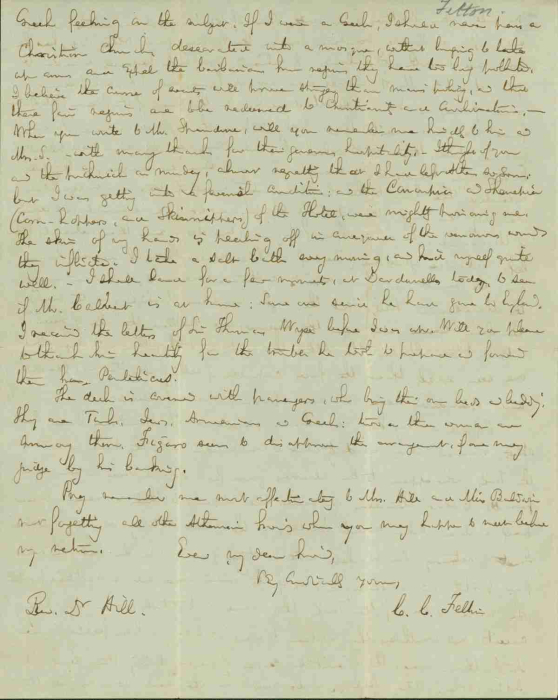 Felton.
Greek feeling on the subject. If I were a Greek, I should never pass a
Christian Church, desecrated into a mosque, without longing to take
up arms and expel the barbarians from regions they have too long polluted.
I believe the cause of right will prove stronger than Mons policy, and that
these fair regions are to be redeemed to Christianity and Civilization.—
When you write to Mr. will you remember me kindly to him and
Mrs. S. with many thanks for their generous hospitality.
on the on Sunday, almost regretting that I have left
but I was getting into a feverish condition; and the
(Corn-hoppers, and Skinnippers) of the Hotel, were mightily me.
The skin of my hands is peeling off in consequence of the venomous wounds
they inflicted. I take a salt bath every morning, and find myself quite
well.— I shall land for a few moments, at Dardanelles today to see
if Mr. Calvert is at home: Some one said he has gone to England.
I received the letters of Sir Thomas Wyse before I was Will you please
to thank him heartily for the trouble he took to prepare and forward
them
The deck is covered with passengers, who bring their own beds and bedding.
They are Turks, Jews, Armenians and Greeks: two or three women are
among them. Figaro seems to disapprove the arrangement, if one may
judge by his barking.
Pray remember me most affectionately to Mrs. Hill and Miss Baldwin
not forgetting all other Athenian friends whom you may happen to meet before
my return.
Ever my dear friend,
Most cordially yours,
Rev. Dr Hill.
C. C. Felton